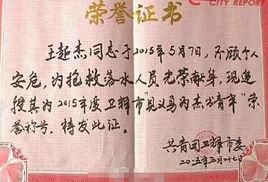 CITY REPORT
荣誉证书
王超杰同志于2015年5月7日,不顾个人
安危,为抢救落水人员光荣献身。现追
授其为2015年度卫辉市"见义勇为杰出青年"荣
誉称号。特发此证。
共青团卫辉市委
二〇一五年五月十七日